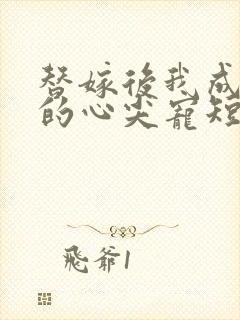 替嫁後我成
的心尖寵短
飛爺1